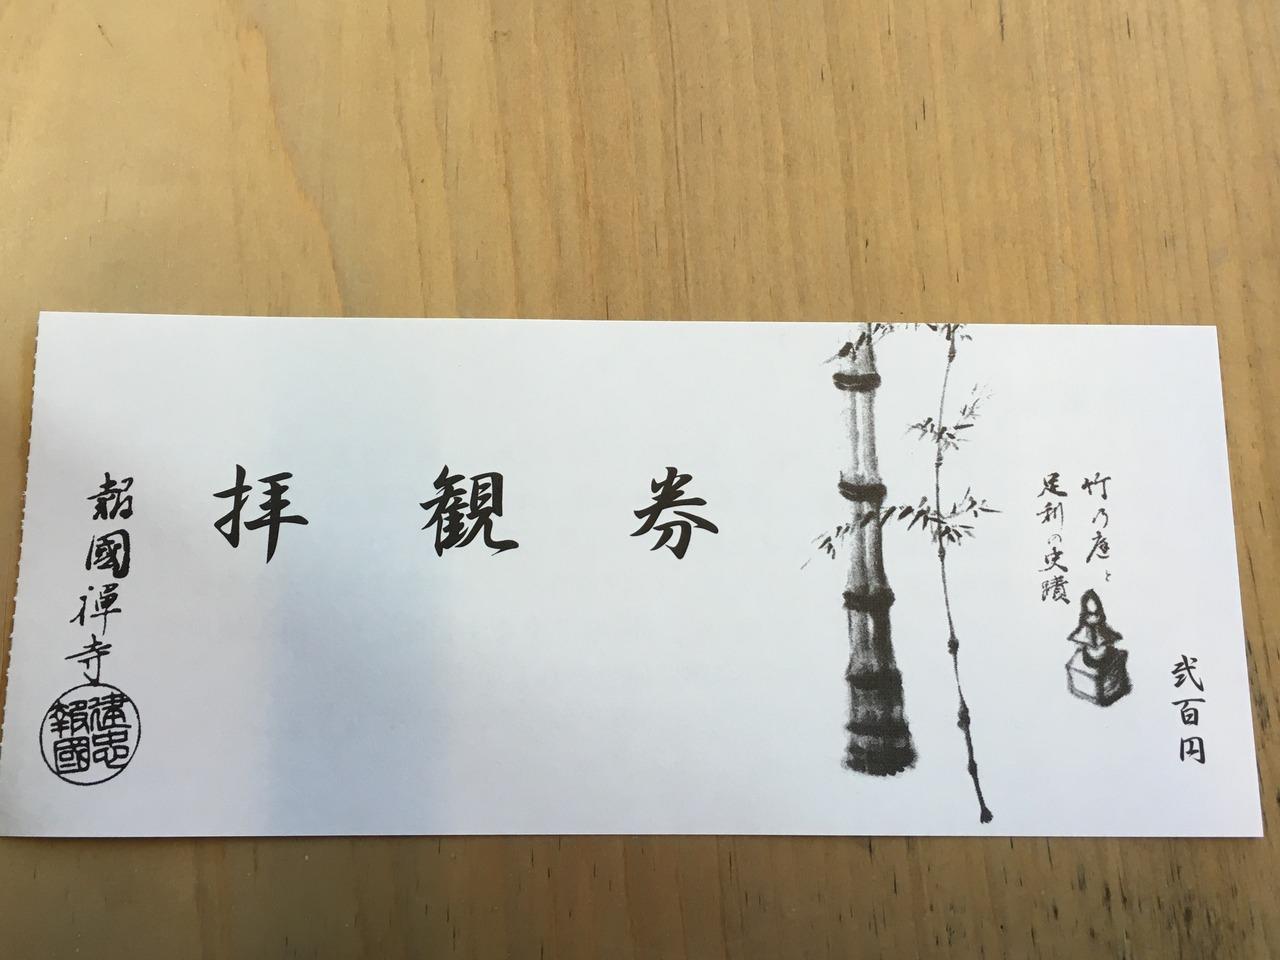 拝観券
竹乃庭と
足利の史蹟
弐百円
報國禅寺
建忠
報國